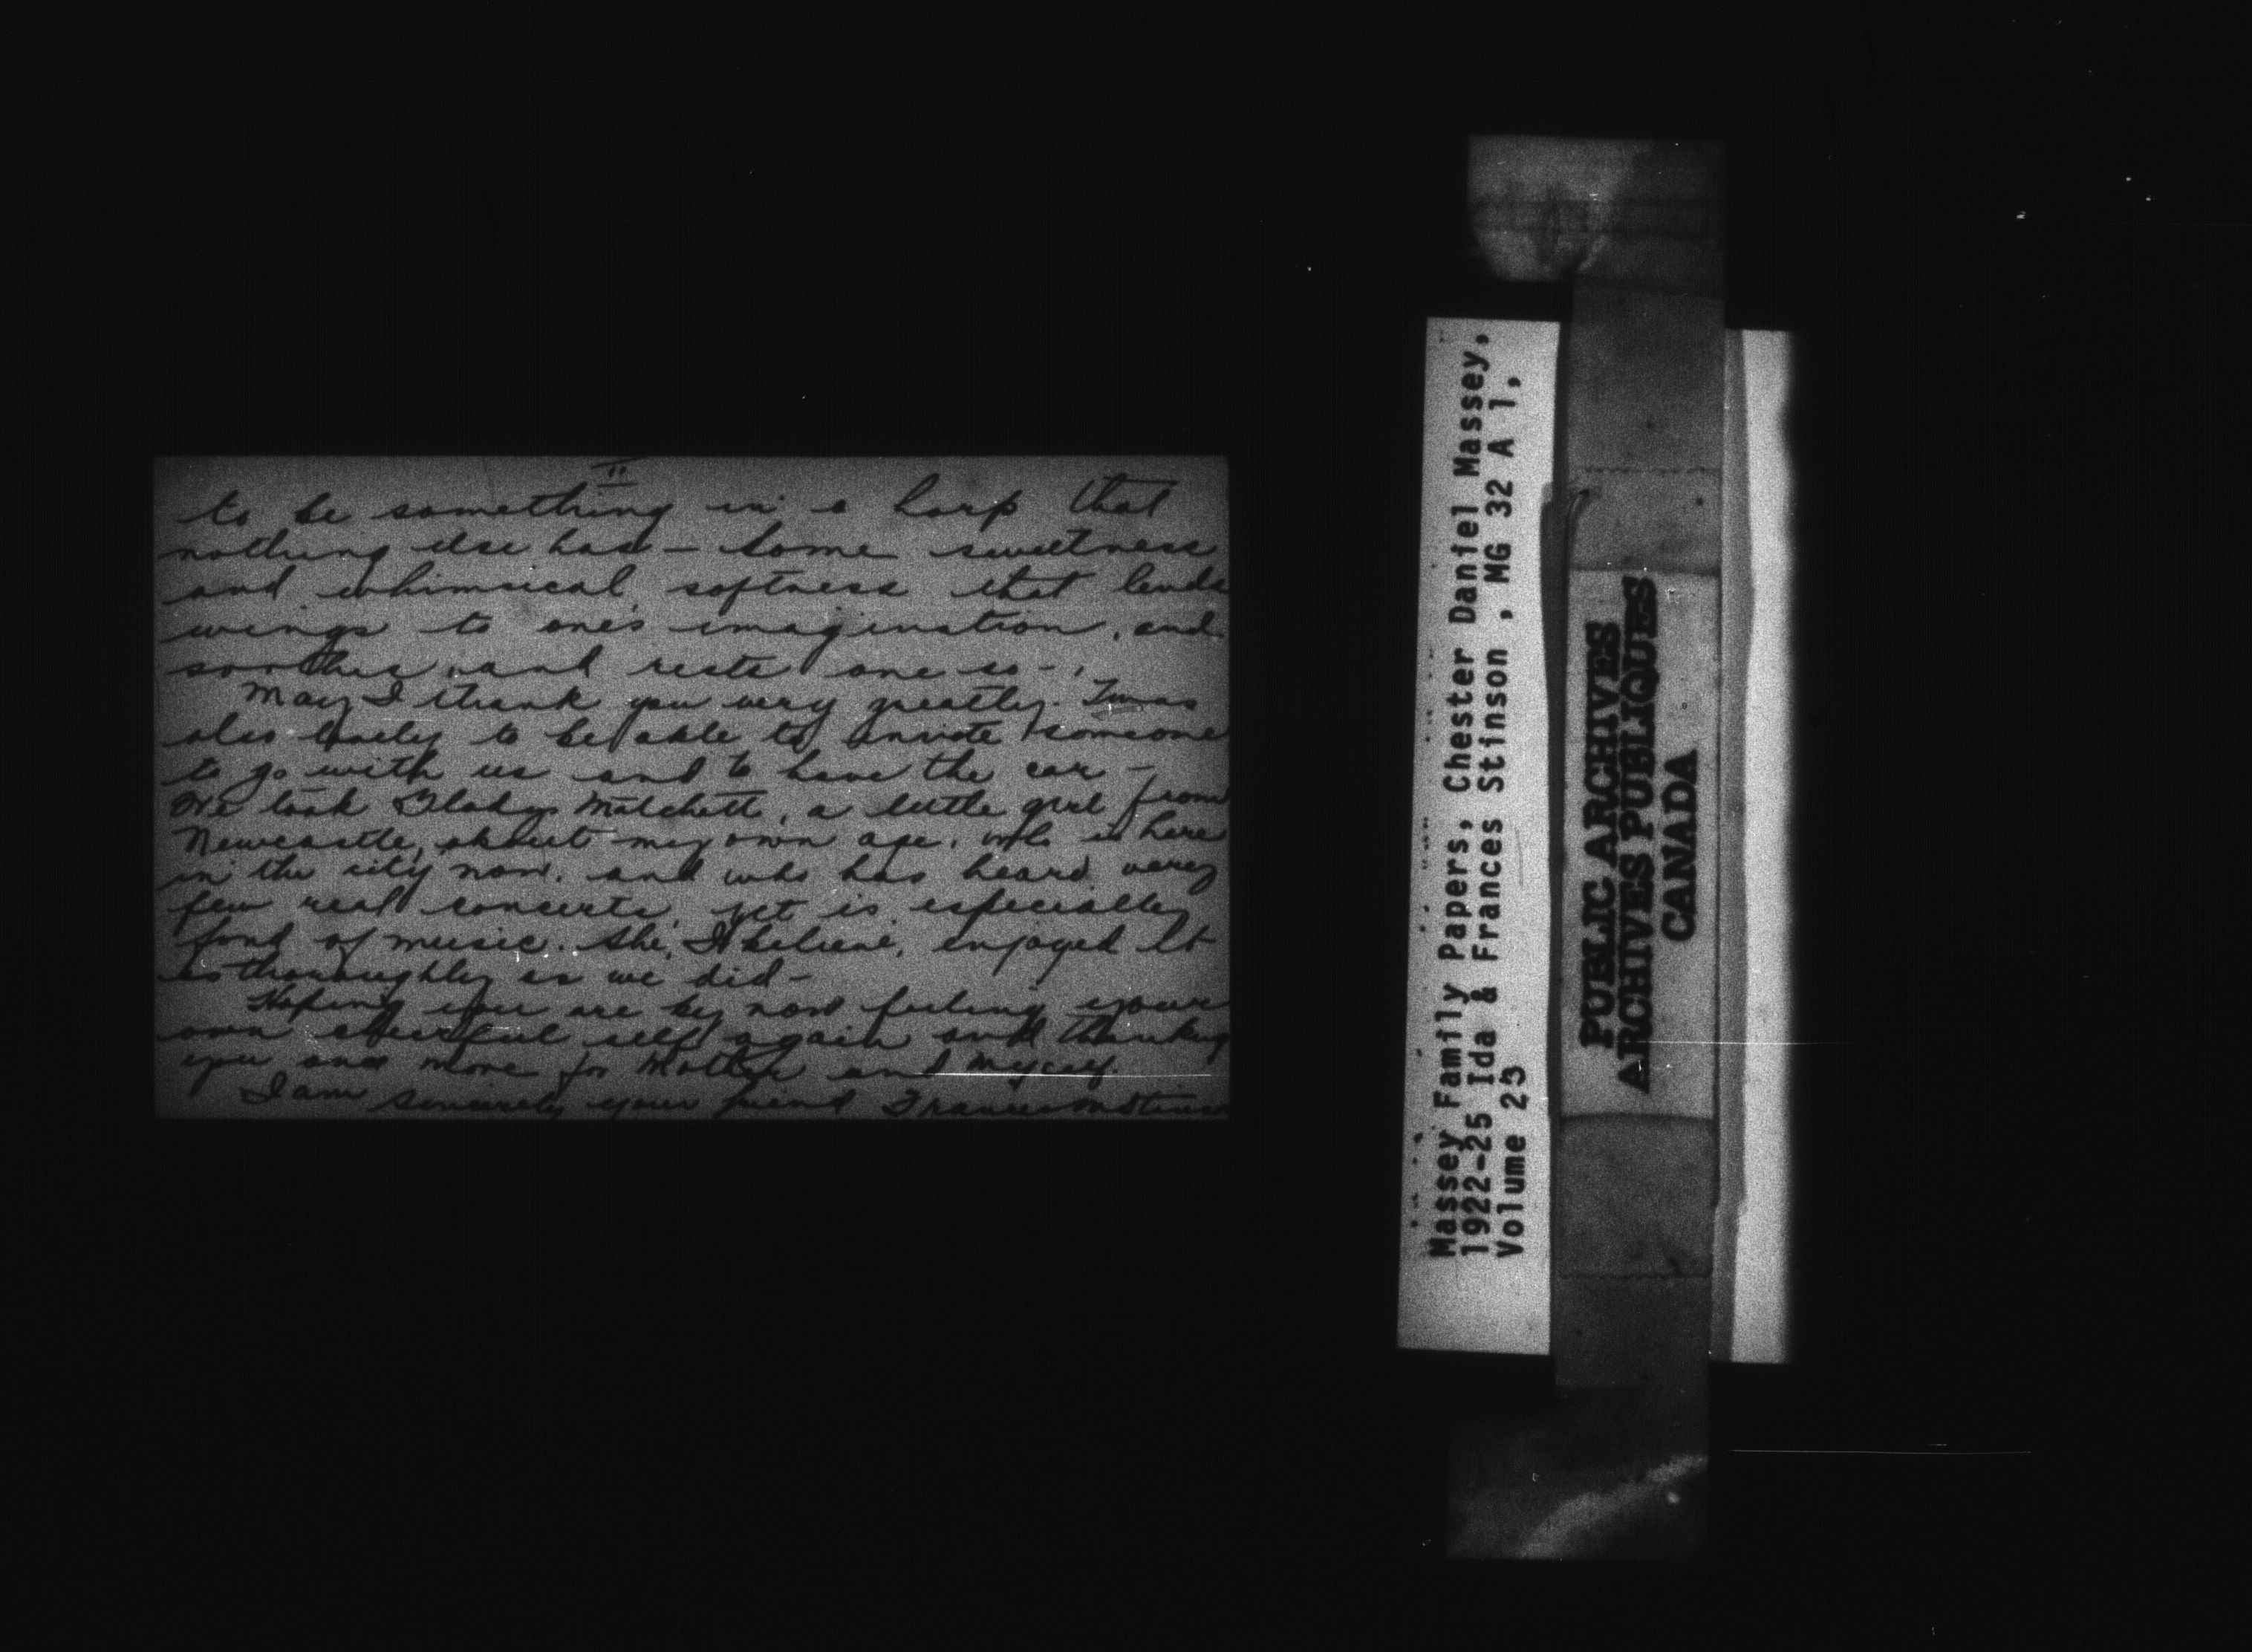 "
to be something in a harp that
nothing else has - some sweetness
and whimsical softness that lends
wings to one's imagination, and
soothes and rests one so -
May I thank you very greatly. Twas
also lovely to be able to invite someone
to go with us and to have the car -
We took Gladys Mitchell, a little girl from
Newcastle, about my own age, who is here
in the city now, and who has heard very
few real concerts, yet is especially
fond of music. She, I believe, enjoyed it
as thoroughly as we did -
Hoping you are by now feeling your
own cheerful self again and thanking
you once more for Mother and myself.
I am sincerely your friend Frances
Massey Family Papers, Chester Daniel Massey,
1922-25 Ida & Frances Stinson , MG 32 A 1,
Volume 23
PUBLIC ARCHIVES
ARCHIVES PUBLIQUES
CANADA